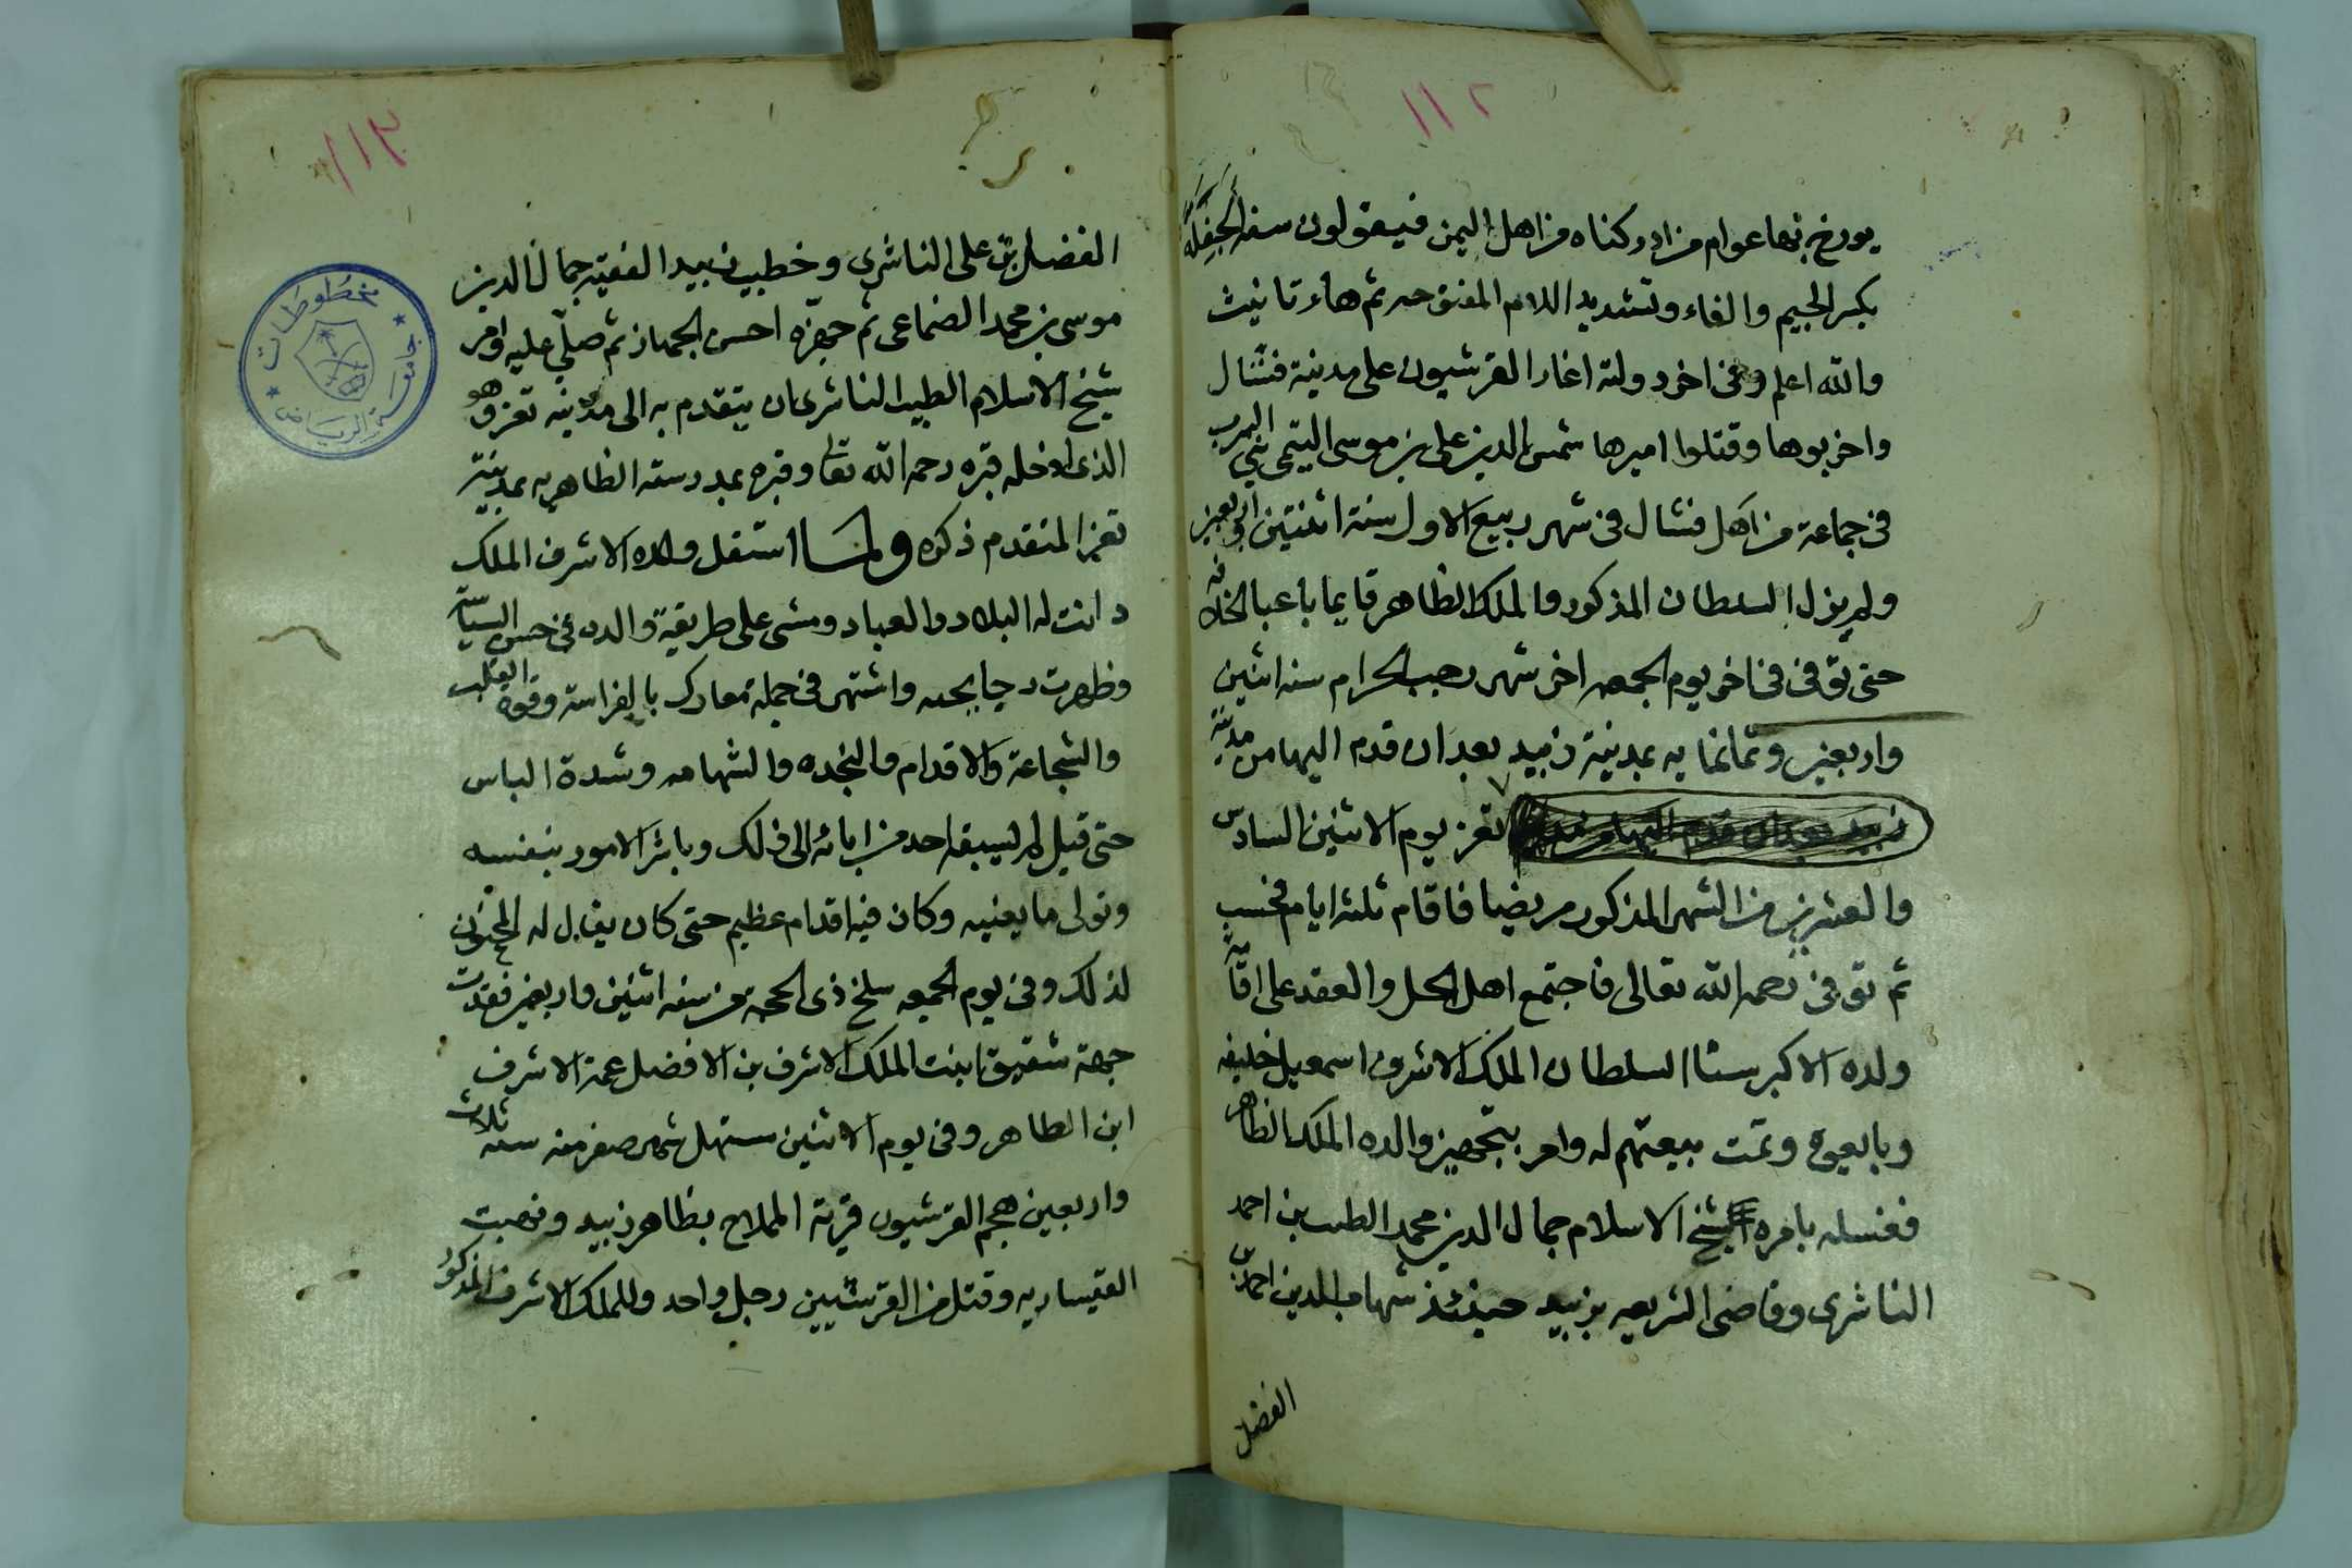 ١١٢
يورخ بها عوام من ادركناه من اهل اليمن فيقولون سنة الجفلة
بكسر الجيم والفاء وتشديد اللام المفتوحه ثم هاء تانيث
والله اعلم وفى اخر دولته اغار القرشيون على مدينة فشال
واخربوها وقتلوا اميرها شمس الدين على بن موسى التيمى
فى جماعة من اهل فشال فى شهر ربيع الاول سنة اثنتين واربعين
ولم يزل السلطان المذكور والملك الظاهر قايما باعبا الخلافه
حتى توفى فى اخر يوم الجمعه اخر شهر رجب الحرام سنه اثنين
واربعين وثمانمايه بمدينة زبيد بعد ان قدم اليها من مدينة
تعز يوم الاثنين السادس
والعشرين من الشهر المذكور مريضا فاقام ثلثه ايام فحسب
ثم توفى رحمه الله تعالى فاجتمع اهل الحل والعقد على اقامة
ولده الاكبر سنا السلطان الملك الاشرف اسمعيل خليفه
وبايعوه وتمت بيعتهم له وامر بتجهيز والده الملك الظاهر
فغسله بامره شيخ الاسلام جمال الدين محمد الطيب بن احمد
الناشرى وقاضى الشريعه بزبيد حينئذ شهاب الدين احمد بن
الفضل
١١٣
الفضل بن على الناشرى وخطيب زبيد الفقيه جمال الدين
موسى بن محمد الضماعى ثم جهزه احسن الجهاز ثم صلى عليه وامر
شيخ الاسلام الطيب الناشرى ان يتقدم به الى مدينه تعز وهو
الذى ادخله قبره رحمه الله تعالى وقبره بمدرسته الظاهريه بمدينة
تعز المتقدم ذكره ولما استقل ولده الاشرف الملك
دانت له البلاد والعباد ومشى على طريقة والده فى حسن السياسة
وظهرت واشتهر فى جملة معارك بالفراسة وقوة القلب
والشجاعة والاقدام والنجده والشهامه وشدة الباس
حتى قيل لم يسبقه احد من ابائه الى ذلك وباشر الامور بنفسه
وتولى ما يعنيه وكان فيه اقدام عظيم حتى كان يقال له المجنون
لذلك وفى يوم الجمعه سلخ ذى الحجه من سنه اثنين واربعين فقدت
جهة شقيق ابنت الملك الاشرف بن الافضل عمة الاشرف
ابن الظاهر وفى يوم الاثنين مستهل شهر صفر منه سنه ثلاث
واربعين هجم القرشيون قرية المملاح بظاهر زبيد ونهبت
القيساريه وقتل من القرشيين رجل واحد وللملك الاشرف المذكور
مخطوطات
جامعة الرياض